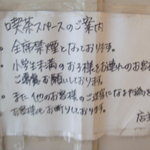 喫茶スペースのご案内
・全席禁煙となっております。
・小学生未満のお子様をお連れのお客様
ご遠慮お願いしております。
・また他のお客様のご迷惑になる行為を
お断りしております。
店主